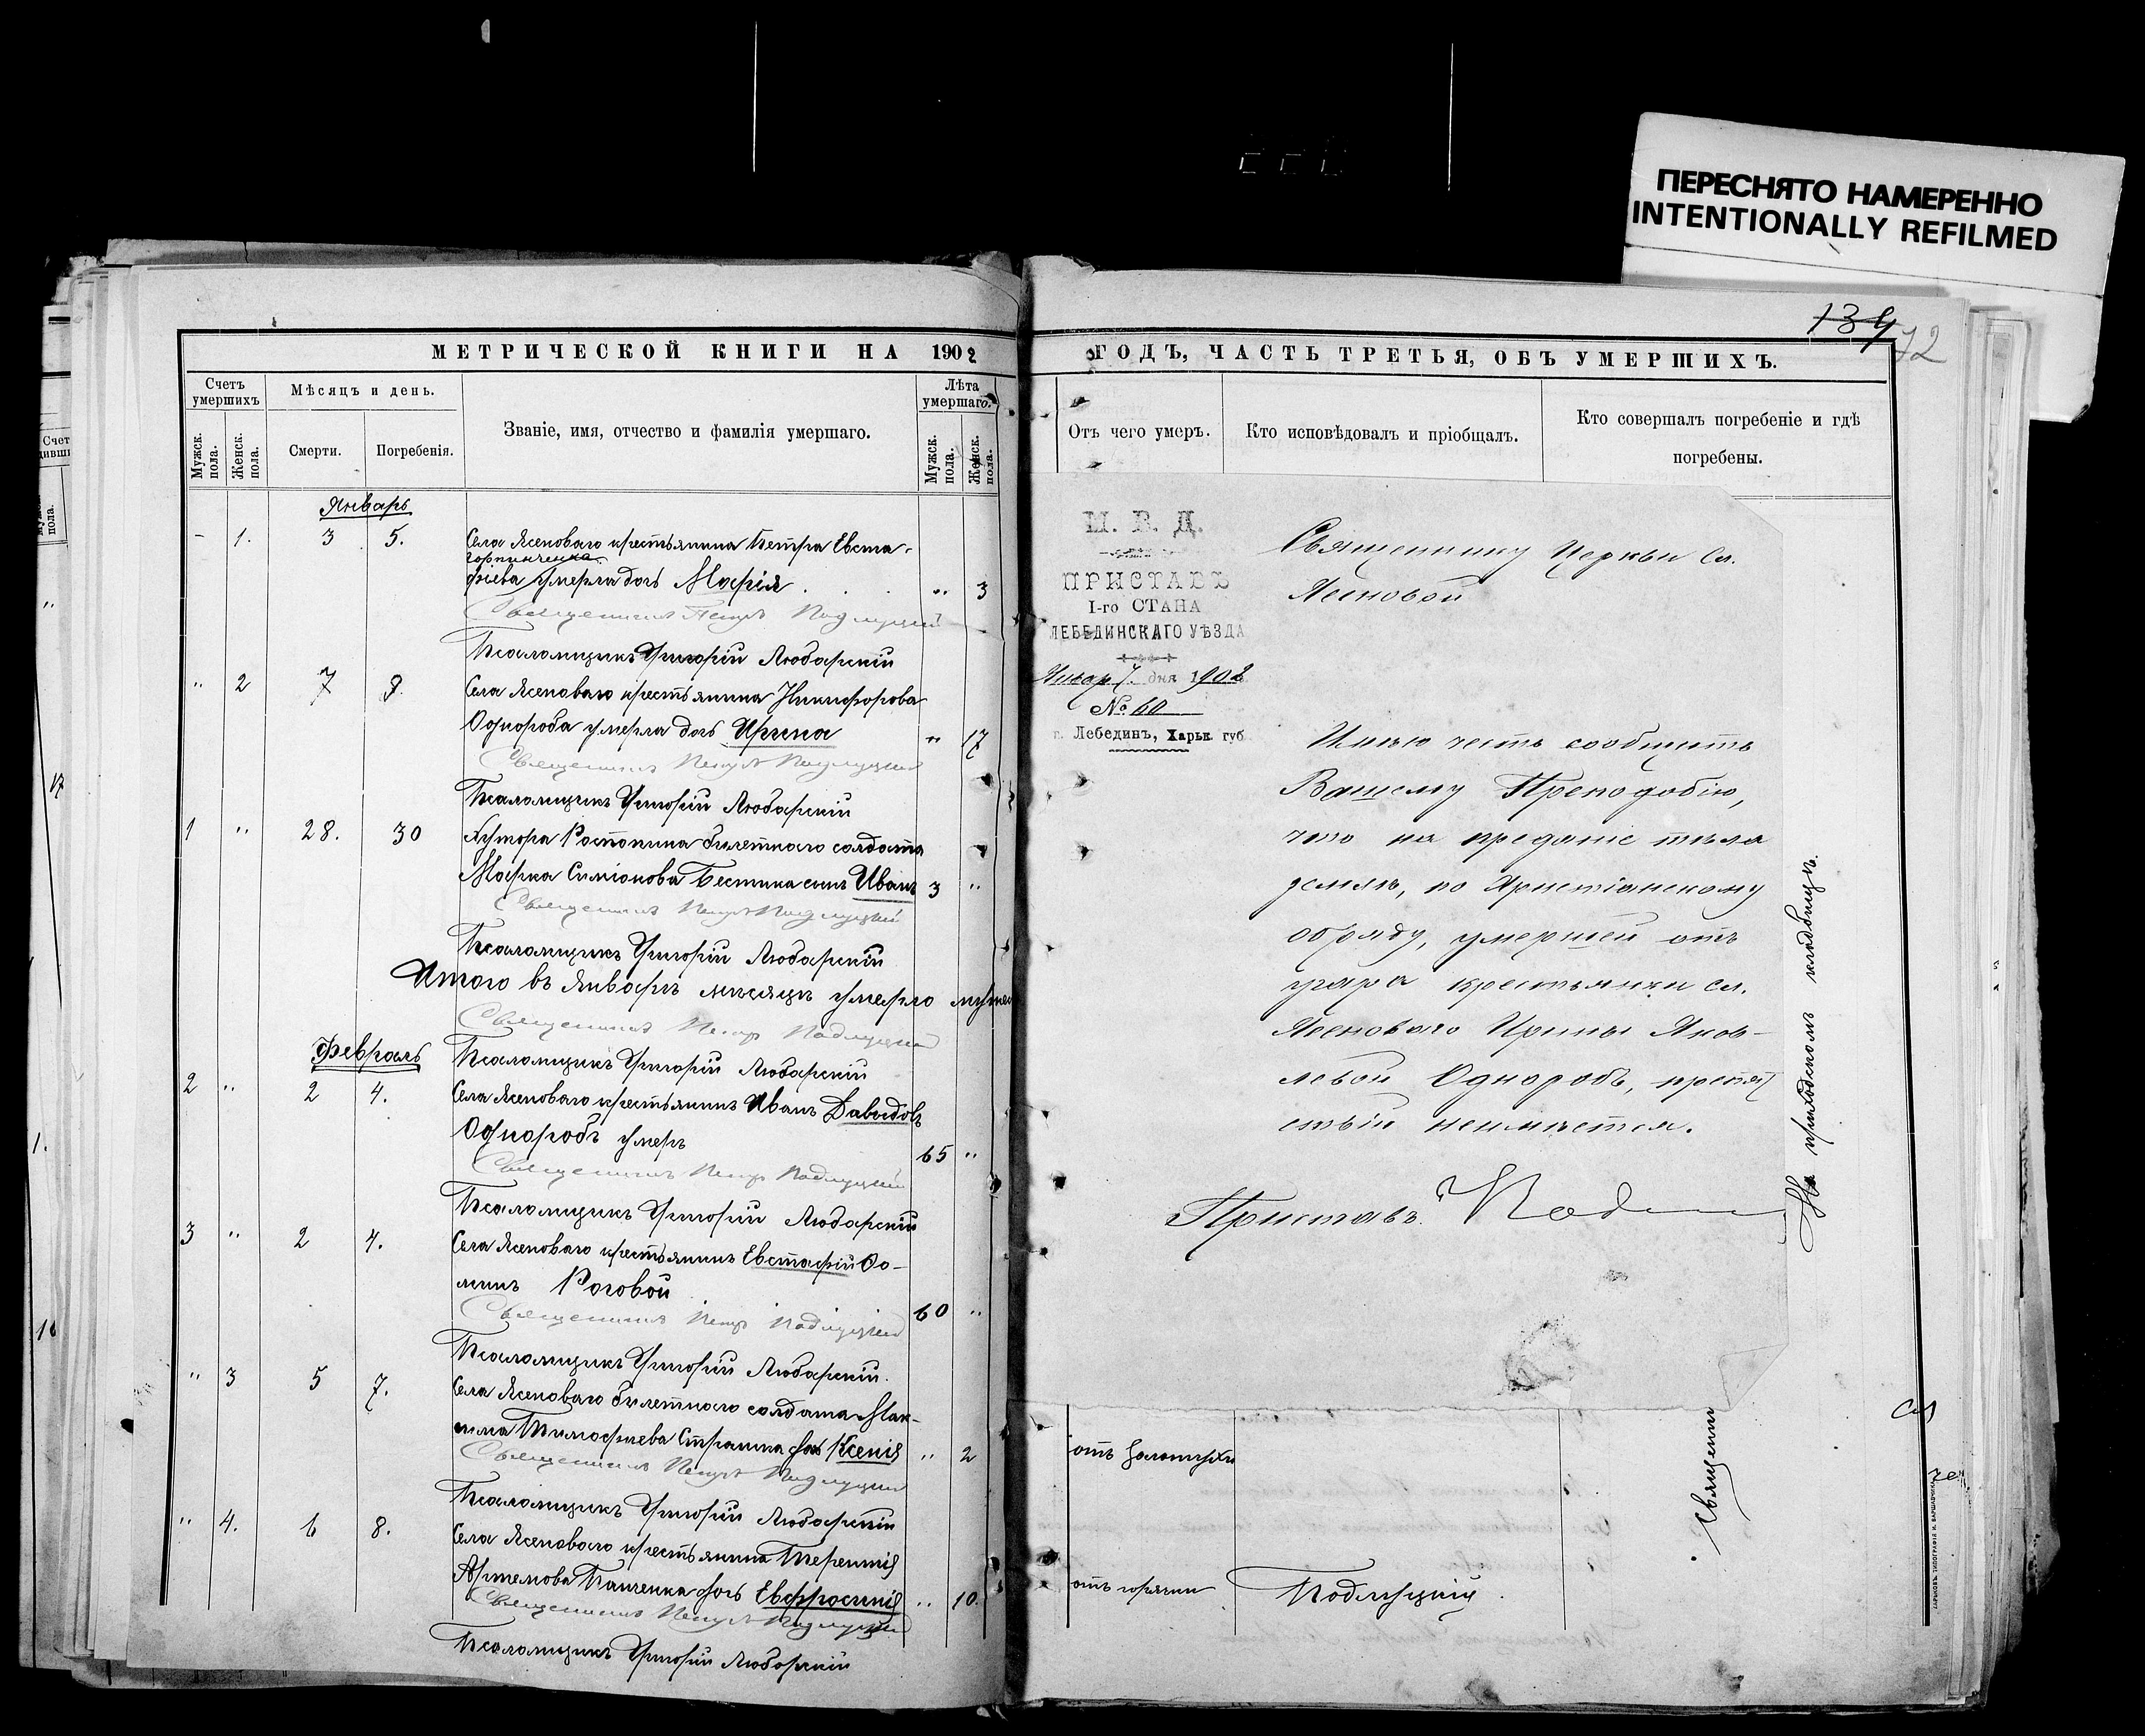 ПЕРЕСНЯТО НАМЕРЕННО
INTENTIONALLY REFILMED
134
72
МЕТРИЧЕСКОЙ КНИГИ НА 1902
ГОДЪ, ЧАСТЬ ТРЕТЬЯ, ОБЪ УМЕРШИХЪ.
Счетъ умершихъ
Мѣсяцъ и день.
Званіе, имя, отчество и фамилія умершаго.
Лѣта умершаго.
Мужск. пола.
Женск. пола.
Смерти.
Погребенія.
Мужск. пола.
Женск. пола.
Отъ чего умеръ.
Кто исповѣдовалъ и пріобщалъ.
Кто совершалъ погребеніе и гдѣ
погребены.
Январь
- 1. 3 5. Села Ясеноваго крестьянина Петра Евста-
фіева умерла дочь Марія " 3
Священникъ Петръ Подлуцкій
Псаломщикъ Григорій Любарскій
" 2 7 9. Села Ясеноваго крестьянина Никифорова
Однороба умерла дочь Ирина " 17
Священникъ Петръ Подлуцкій
Псаломщикъ Григорій Любарскій
1 " 28. 30 Хутора Ростопина билетнаго солдата
Марка Симіонова Бестика сынъ Иванъ 3 "
Священникъ Петръ Подлуцкій
Псаломщикъ Григорій Любарскій
Итого въ Январѣ мѣсяцѣ умерло
Священникъ Петръ Подлуцкій
Псаломщикъ Григорій Любарскій
Февраль
2 " 2 4. Села Ясеноваго крестьянинъ Иванъ Давыдовъ
Одноробъ умеръ 65 "
Священникъ Петръ Подлуцкій
Псаломщикъ Григорій Любарскій
3 " 2 4. Села Ясеноваго крестьянинъ Евстафій Ѳо-
минъ Роговой 60 "
Священникъ Петръ Подлуцкій
Псаломщикъ Григорій Любарскій.
" 3 5 7. Села Ясеноваго билетнаго солдата Мак-
сима Тимофѣева дочь Ксенія " 2
Священникъ Петръ Подлуцкій
Псаломщикъ Григорій Любарскій
" 4. 6 8. Села Ясеноваго крестьянина Терентія
Артемова Пащенка дочь Евфросинія " 10.
Священникъ Петръ Подлуцкій
Псаломщикъ Григорій Любарскій
М. В. Д.
ПРИСТАВЪ
1-го СТАНА
ЛЕБЕДИНСКАГО УѢЗДА
Январ. 7 дня 1902
№ 60
г. Лебединъ, Харьк. губ.
Священнику Церкви сл.
Ясеновой
Имѣю честь сообщить
Вашему Преподобію,
что на преданіе тѣла
землѣ, по Христіанскому
обряду, умершей отъ
угара крестьянки сл.
Ясеноваго Ирины Яков-
левой Одноробъ, препят
ствій неимѣется.
Приставъ
На приходскомъ кладбищѣ.
Священник
отъ горячки
Подлуцкій